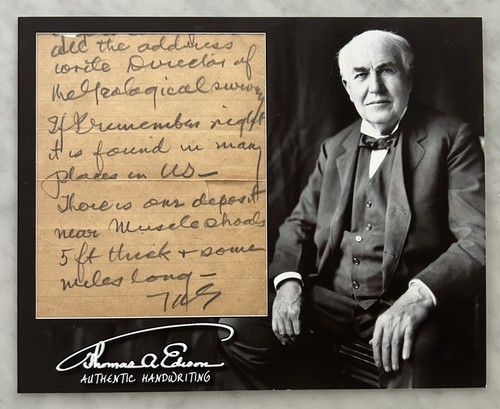 all the address
write Director of
the Geological survey
If I remember right
it is found in many
places in US—
There is one deposit
near Muscle shoals
5 ft thick & some
miles long—
Thomas A. Edison
AUTHENTIC HANDWRITING